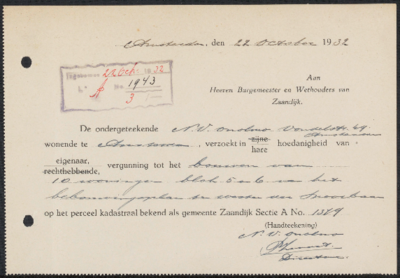 Amsterdam, den 22 October 1932
Ingekomen 22 Oct. 1932
No 1943
3
Aan
Heeren Burgemeester en Wethouders van
Zaandijk.
De ondergeteekende N.V.
wonende te verzoekt in zijne hoedanigheid van
hare
eigenaar,
rechthebbende, vergunning tot het bouwen van
10 woningen blok 5 en 6 van het
bebouwingsplan
op het perceel kadastraal bekend als gemeente Zaandijk Sectie A No. 1329
(Handteekening)
N.V.
Directeur